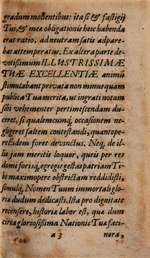 gradum molientibus: ita si & fastigij
Tui, & mea obligationis bene habenda
erat ratio, ad neutram satis adpare-
bat attemperatus. Ex altera parte de-
votissimum ILLUSTRISSIMÆ
TUÆ EXCELLENTIÆ animū
stimulabant privata non minus quam
publica Tua merita, ut ingrati notam
sibi vehementer pertimescendam du-
ceret, si qualemcunq; occasionem ne-
gligeret saltem contestandi, quantope-
re Eidem foret devinctus. Neq; de il-
lis jam meritis loquor, quîs per res
domi forisq;
ta maximopere obstrictam reddidisti,
simulq; Nomen Tuum immortali glo-
riæ dudum dedicasti, ista pro dignitate
recensere, historia labor est, qua dum
circa gloriosissima Nationis Tua faci-
a 3 nora,